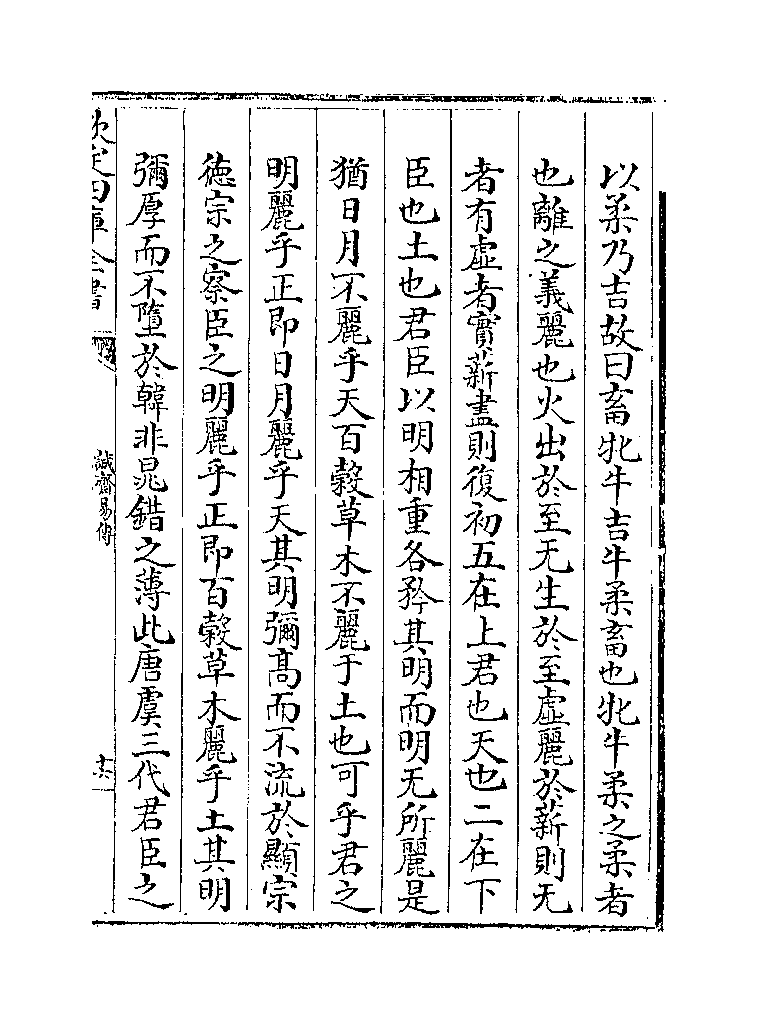 以柔乃吉故曰畜牝牛吉牛柔畜也牝牛柔之柔者
也離之義麗也火出於至无生於至虛麗於薪則无
者有虛者實薪盡則復初五在上君也天也二在下
臣也土也君臣以明相重各矜其明而明无所麗是
猶日月不麗乎天百穀草木不麗于土也可乎君之
明麗乎正即日月麗乎天其明彌髙而不流於顯宗
徳宗之察臣之明麗乎正即百穀草木麗乎土其明
彌厚而不墮於韓非晁錯之薄此唐虞三代君臣之
欽定四庫全書
誠齋易傳